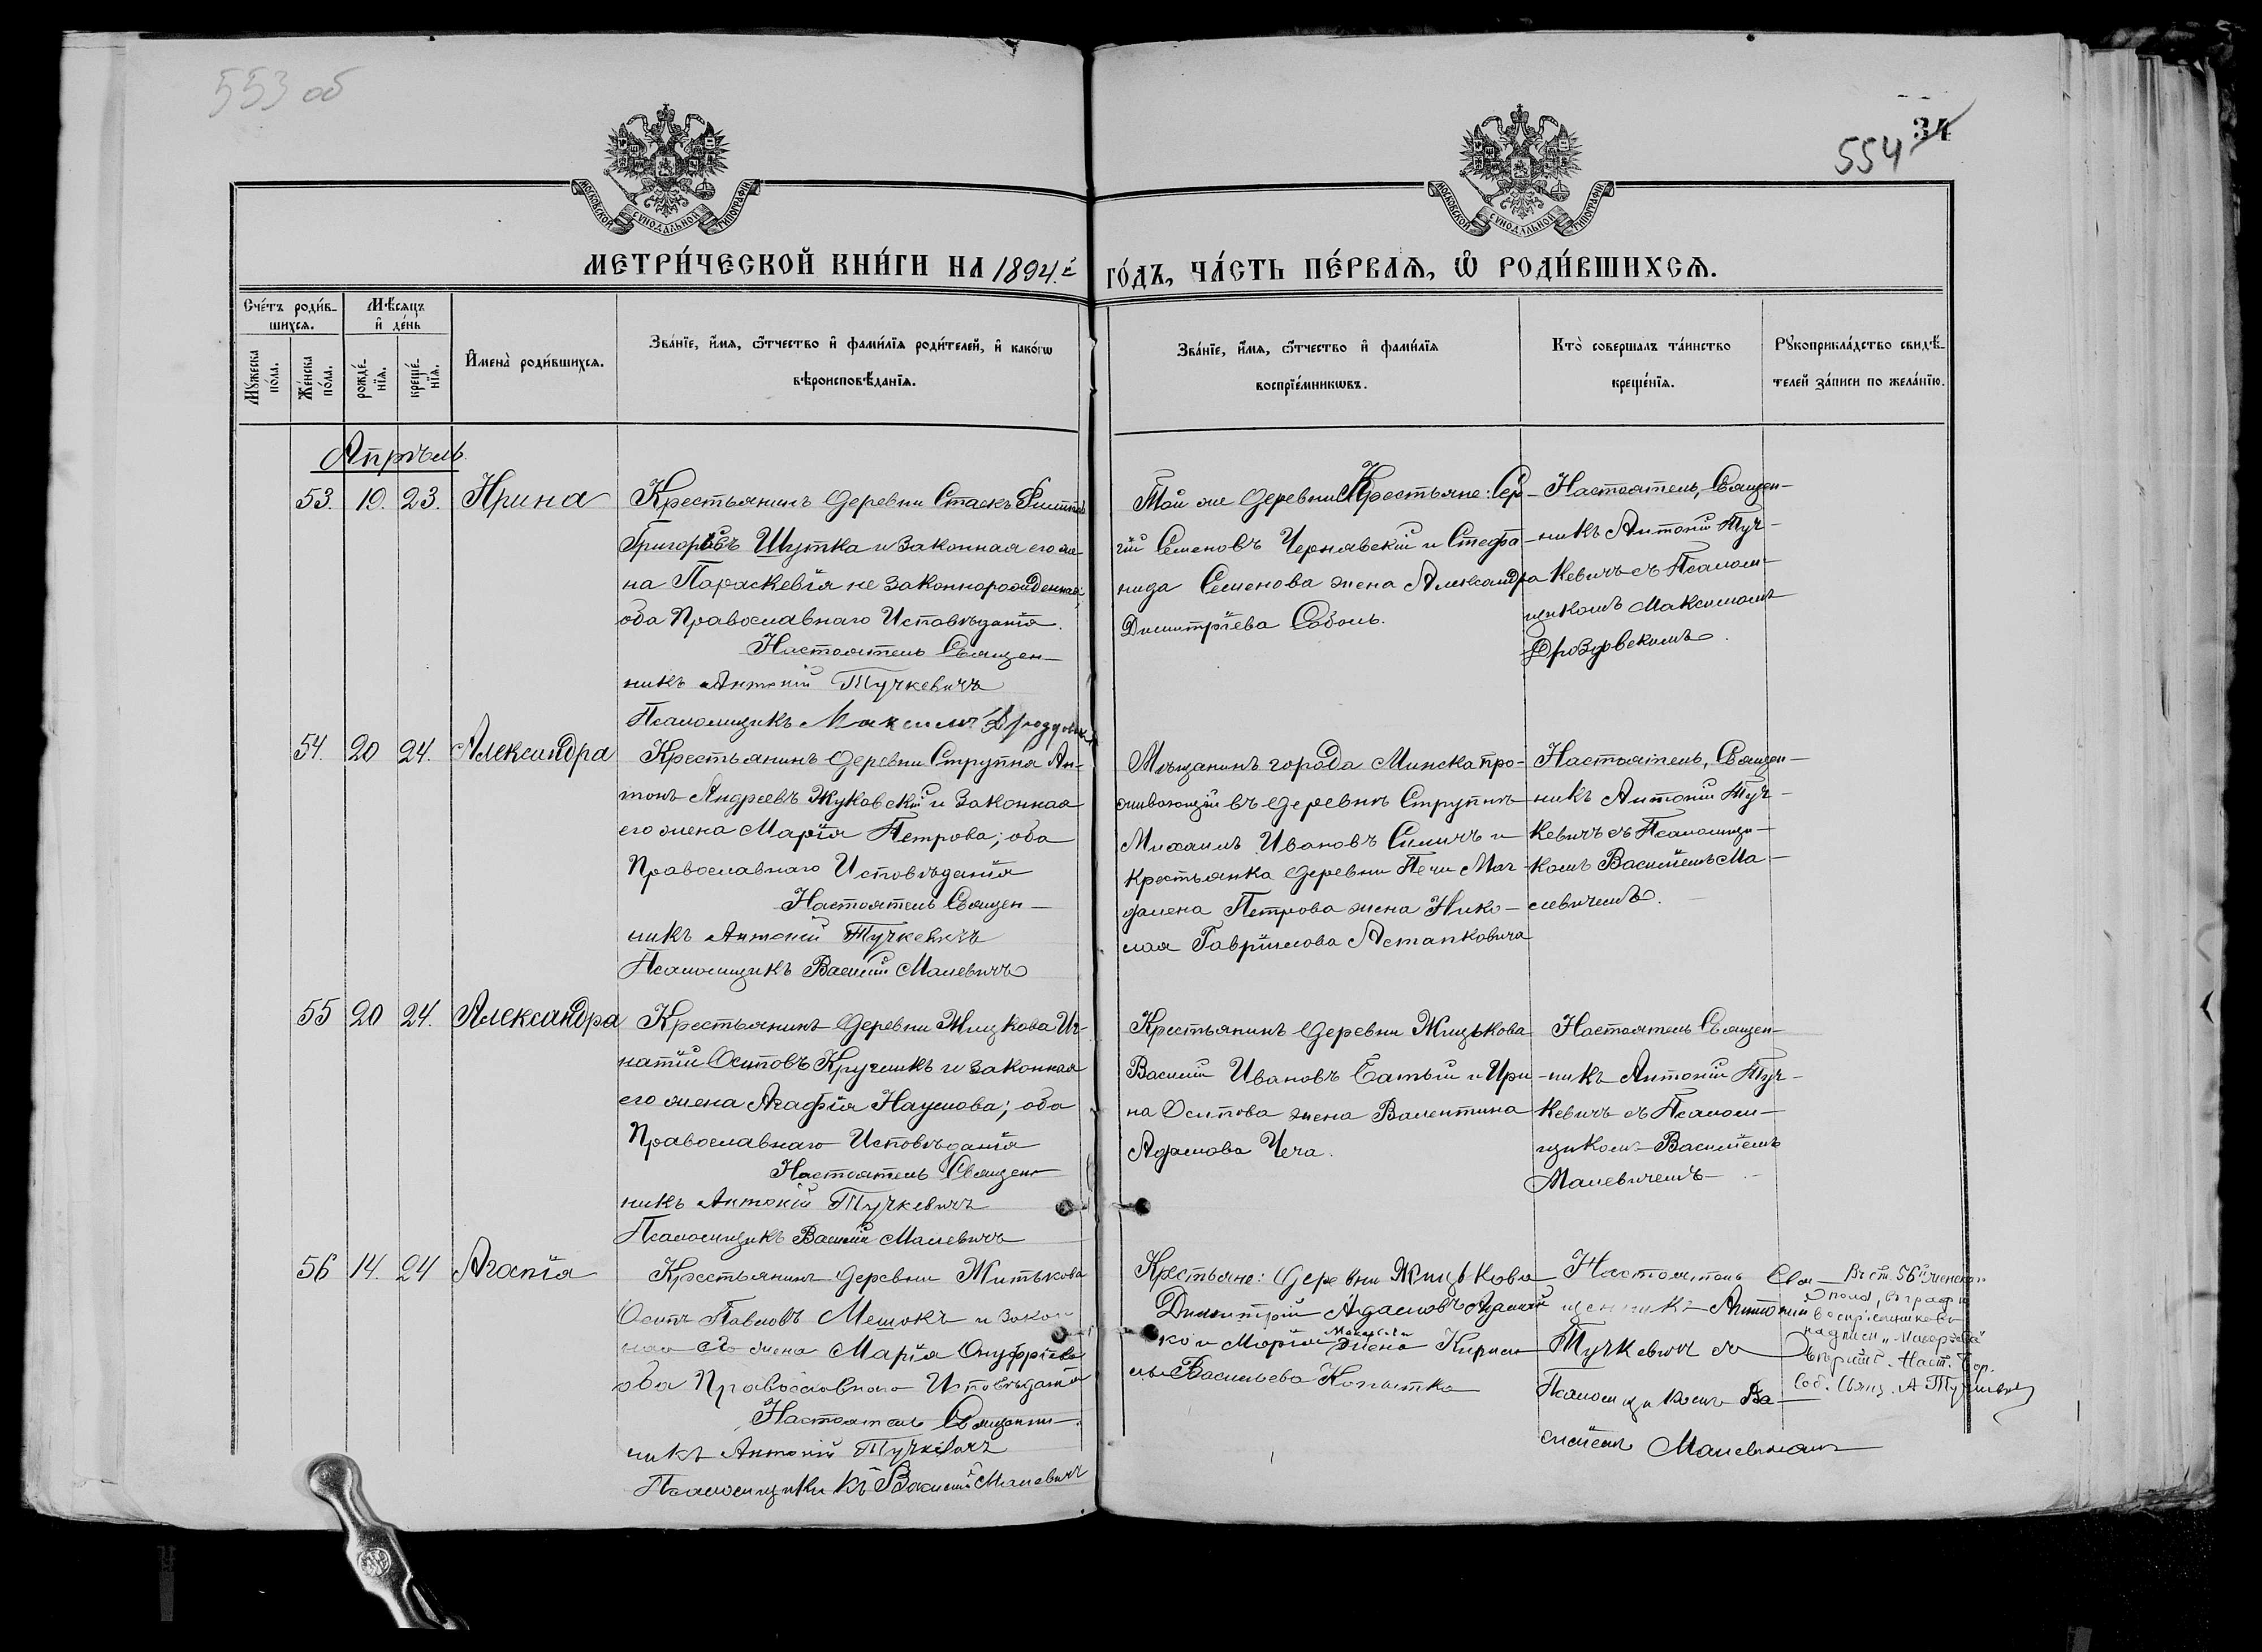 553 об
554 34
МОСКОВСКОЙ СѴНОДАЛЬНОЙ ТИПОГРАФІИ
МОСКОВСКОЙ СѴНОДАЛЬНОЙ ТИПОГРАФІИ
МЕТРИ́ЧЕСКОЙ КНИ́ГИ НА 1894.й
ГО́ДЪ, ЧА́СТЬ ПЕ́РВАѦ, Ѡ РОДИ́ВШИХСѦ.
Сче́тъ роди́в-
шихсѧ.
Мѣ́сѧцъ
и де́нь
Мꙋ́жеска
по́ла.
Же́нска
по́ла.
рожде́-
нїѧ.
креще́-
нїѧ.
Имена̀ роди́вшихсѧ.
Зва́нїе, и́мѧ, ѻ́тчество и фами́лїѧ роди́телей, и како́гѡ
вѣроисповѣ́данїѧ.
Зва́нїе, и́мѧ, ѻ́тчество и фами́лїѧ
воспрїе́мникѡвъ.
Кто̀ соверша́лъ та́инство
креще́нїѧ.
Рꙋкоприкла́дство свидѣ́-
телей за́писи по жела́нїю.
Апрѣль.
53. 19. 23. Ирина
Крестьянинъ деревни Стаекъ Филиппъ
Григорьевъ Шутка и законная его же-
на Параскевія не законнорожденная;
оба Православнаго Исповѣданія.
Настоятель Священ-
никъ Антоній Тучкевичъ
Псаломщикъ Максимъ Дроздовскій
Той же деревни Крестьяне: Сер-
гій Семеновъ Чернявскій и Стефа-
нида Семенова жена Александра
Димитріева Соболь.
Настоятель, Священ-
никъ Антоній Туч-
кевичъ съ Псалом-
щикомъ Максимомъ
Дроздовскимъ.
54. 20 24. Александра
Крестьянинъ деревни Струпня Ан-
тонъ Андреевъ Жуковскій и законная
его жена Марія Петрова; оба
Православнаго Исповѣданія
Настоятель Священ-
никъ Антоній Тучкевичъ
Псаломщикъ Василій Малевичъ
Мѣщанинъ города Минска про-
живающій въ деревнѣ Струпнѣ
Михаилъ Ивановъ Симичъ и
крестьянка деревни Печи Маг-
далена Петрова жена Нико-
лая Гавріилова Астапковича
Настоятель, Священ-
никъ Антоній Туч-
кевичъ съ Псаломщи-
комъ Василіемъ Ма-
левичемъ.
55 20 24. Александра
Крестьянинъ деревни Жицкова Иг-
натій Осиповъ Кручикъ и законная
его жена Агафія Наумова; оба
Православнаго Исповѣданія
Настоятель Священ-
никъ Антоній Тучкевичъ
Псаломщикъ Василій Малевичъ
Крестьянинъ деревни Жицькова
Василій Ивановъ Батый и Ири-
на Осипова жена Валентина
Адамова Чеча.
Настоятель Священ-
никъ Антоній Туч-
кевичъ съ Псалом-
щикомъ Василіемъ
Малевичемъ
56 14. 24 Агапія
Крестьянинъ деревни Житькова
Осипъ Павловъ Мешокъ и закон-
ная его жена Марія Онуфріева
оба Православнаго Исповѣданія
Настоятель Священ-
никъ Антоній Тучкевичъ
Псаломщикъ Василій Малевичъ
Крестьяне: деревни Жицькова
Димитрій Адамовъ
ко и Марія жена Кирил-
лы Васильева Копытка
Настоятель Свя-
щенникъ Антоній
Тучкевичъ съ
Псаломщикомъ Ва-
силіемъ Малевичемъ
Въ ст. 56й женска
пола, въ графѣ
воспріемниковъ
надписи
вѣрить. Наст. Бор.
Соб. Свящ. А Тучкевичъ